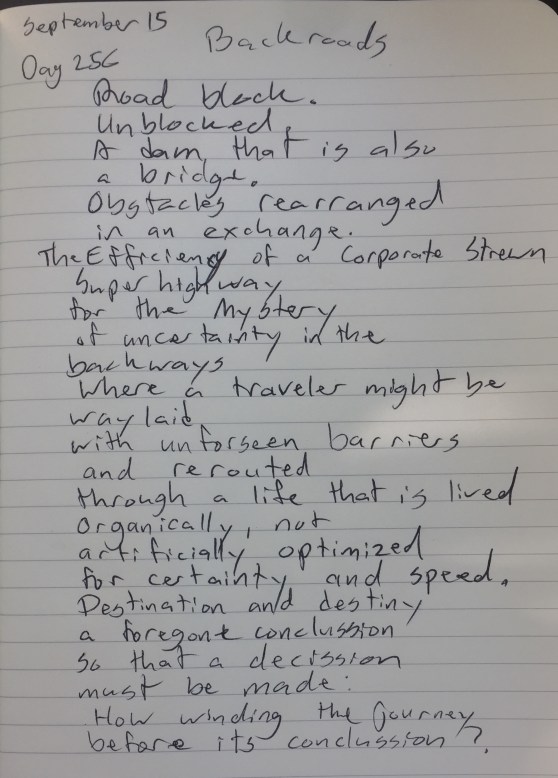 September 15
Backroads
Day 256
Road block.
Unblocked.
A dam, that is also
a bridge.
Obstacles rearranged
in an exchange.
The Efficiency of a Corporate Strewn
Super highway
for the Mystery
of uncertainty in the
backways
Where a traveler might be
waylaid
with unforseen barriers
and rerouted
through a life that is lived
organically, not
artificially optimized
for certainty and speed.
Destination and destiny
a foregone conclussion
so that a decission
must be made:
How winding the journey
before its conclussion?